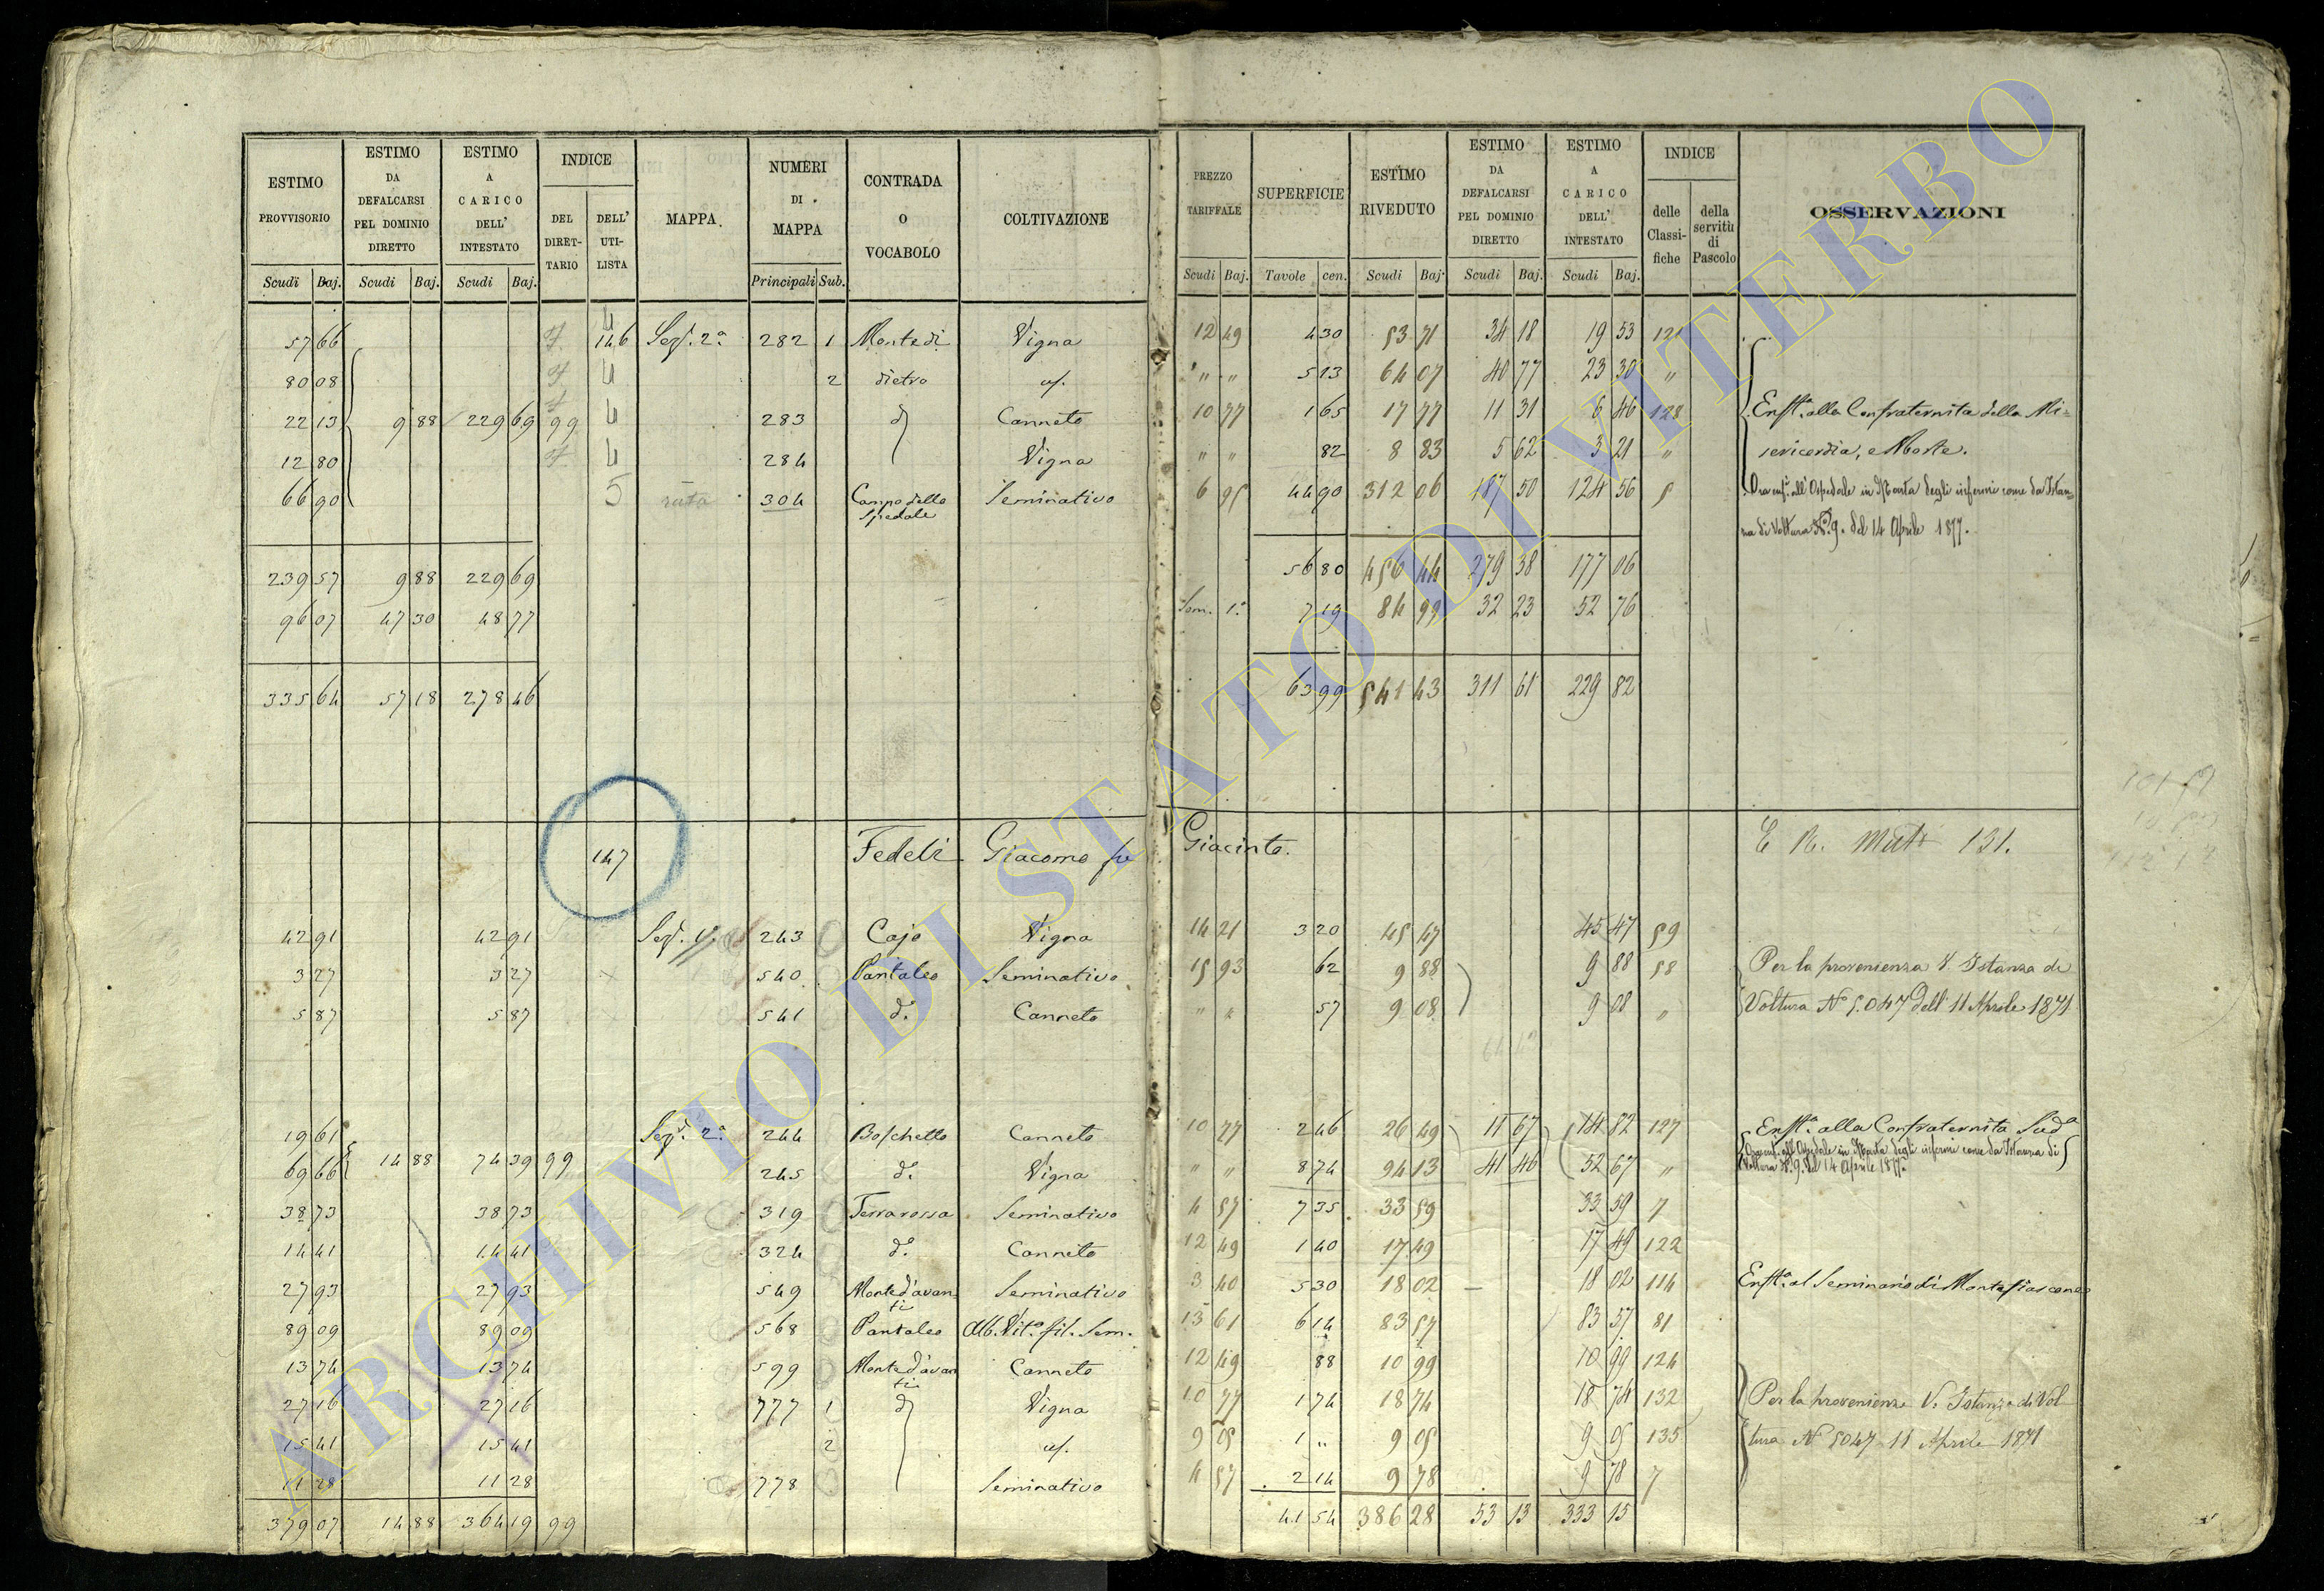 ESTIMO PROVVISORIO | ESTIMO DA DEFALCARSI PEL DOMINIO DIRETTO | ESTIMO A CARICO DELL' INTESTATO | INDICE | MAPPA | NUMERI DI MAPPA | CONTRADA O VOCABOLO | COLTIVAZIONE | PREZZO TARIFFALE | SUPERFICIE | ESTIMO RIVEDUTO | ESTIMO DA DEFALCARSI PEL DOMINIO DIRETTO | ESTIMO A CARICO DELL' INTESTATO | INDICE | OSSERVAZIONI
DEL DIRETTARIO | DELL' UTILISTA | delle Classifiche | della servitù di Pascolo
Scudi Baj. | Scudi Baj. | Scudi Baj. | Principali Sub. | Scudi Baj. | Tavole cen. | Scudi Baj | Scudi Baj. | Scudi Baj.
57 66 146 Sez. 2a 282 1 Monte di Vigna 12 49 4 30 53 71 34 18 19 53 121
80 08 2 dietro 5 13 64 07 40 77 23 30 "
22 13 9 88 229 69 99 4 283 d Canneto 10 77 1 65 17 77 11 31 6 46 128 Enfta. alla Confraternita della Mi=
12 80 4 284 Vigna " " 82 8 83 5 62 3 21 " sericordia, e Morte.
66 90 5 304 Campo dello Spedale Seminativo 6 95 44 90 312 06 187 50 124 56 5 Ora enf. all'Ospedale in Marta degli infermi come da Istan=
za di Voltura No. 9. del 14 Aprile 1877.
239 57 9 88 229 69 56 80 456 44 279 38 177 06
96 07 47 30 48 77 Som. 1a 7 19 84 99 32 23 52 76
335 64 57 18 278 46 63 99 541 43 311 61 229 82
147 Fedeli Giacomo fu Giacinto. 131.
42 91 42 91 Sez. 1a 243 Cajo Vigna 14 21 3 20 45 47 45 47 59
3 27 3 27 540 Pantaleo Seminativo 15 93 62 9 88 9 88 58 Per la provenienza V. Istanza di
5 87 5 87 541 do. Canneto " " 57 9 08 9 08 " Voltura No 5.047 dell' 11 Aprile 1871
19 61 Sez. 2a 244 Boschetto Canneto 10 77 2 46 26 49 11 67 14 82 127 Enfta. alla Confraternita Sudа
69 66 14 88 74 39 99 245 do. Vigna " " 8 74 94 13 41 46 52 67 " Ora enf. all'Ospedale in Marta degli infermi come da Istanza di
Voltura No. 9. del 14 Aprile 1877.
38 73 38 73 319 Terrarossa Seminativo 4 57 7 35 33 59 33 59 7
14 41 14 41 324 do. Canneto 12 49 1 40 17 49 17 49 122
27 93 27 93 549 Monte d'avanti Seminativo 3 40 5 30 18 02 18 02 114 Enfta. al Seminario di Montefiascone
89 09 89 09 568 Pantaleo Alb. Vito. fil. Sem. 13 61 6 14 83 57 83 57 81
13 74 13 74 599 Monte d'avanti Canneto 12 49 88 10 99 10 99 124
27 16 27 16 777 1 d Vigna 10 77 1 74 18 74 18 74 132 Per la provenienza V. Istanza di Vol
15 41 15 41 2 9 05 1 " 9 05 9 05 135 tura No 5047 11 Aprile 1871
11 28 11 28 778 Seminativo 4 57 2 14 9 78 9 78 7
379 07 14 88 364 19 99 41 54 386 28 53 13 333 15
ARCHIVIO DI STATO DI VITERBO